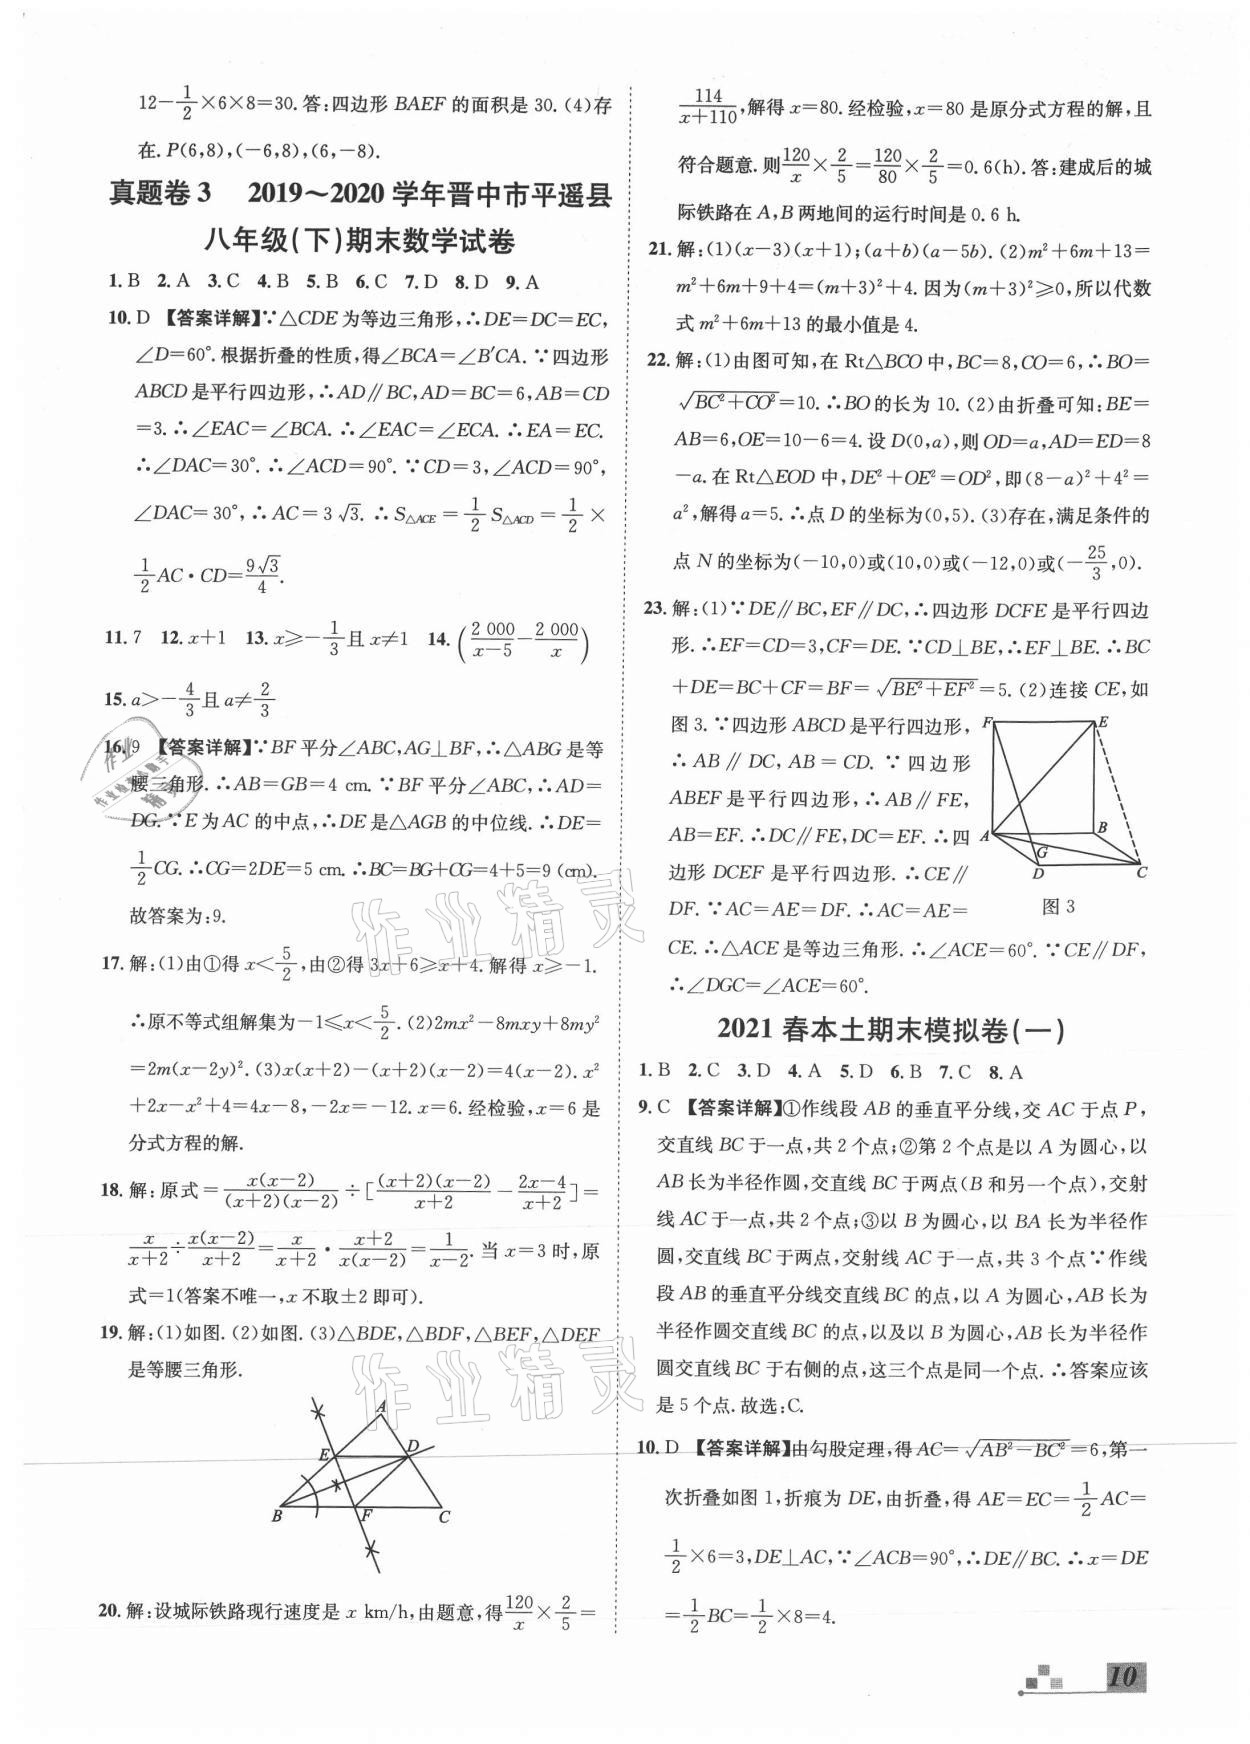 12−1/2×6×8=30. 答:四边形 BAEF 的面积是 30. (4)存
在. P(6,8),(−6,8),(6,−8).
真题卷 3 2019～2020 学年晋中市平遥县
八年级(下)期末数学试卷
1. B 2. A 3. C 4. B 5. B 6. C 7. D 8. D 9. A
10. D 【答案详解】∵△CDE 为等边三角形,∴DE=DC=EC,
∠D=60°. 根据折叠的性质,得∠BCA=∠B′CA. ∵四边形
ABCD 是平行四边形,∴AD∥BC,AD=BC=6,AB=CD
=3. ∴∠EAC=∠BCA. ∴∠EAC=∠ECA. ∴EA=EC.
∴∠DAC=30°. ∴∠ACD=90°. ∵CD=3,∠ACD=90°,
∠DAC=30°,∴AC=3√3. ∴S△ACE=1/2 S△ACD=1/2×
1/2 AC·CD=9√3/4.
11. 7 12. x+1 13. x≥−1/3且 x≠1 14. (2 000/(x−5)−2 000/x)
15. a>−4/3且 a≠2/3
16. 9 【答案详解】∵BF 平分∠ABC,AG⊥BF,∴△ABG 是等
腰三角形. ∴AB=GB=4 cm. ∵BF 平分∠ABC,∴AD=
DG. ∵E 为 AC 的中点,∴DE 是△AGB 的中位线. ∴DE=
1/2 CG. ∴CG=2DE=5 cm. ∴BC=BG+CG=4+5=9 (cm).
故答案为:9.
17. 解:(1)由①得 x<5/2,由②得 3x+6≥x+4. 解得 x≥−1.
∴原不等式组解集为−1≤x<5/2. (2)2mx²−8mxy+8my²
=2m(x−2y)². (3)x(x+2)−(x+2)(x−2)=4(x−2). x²
+2x−x²+4=4x−8,−2x=−12. x=6. 经检验,x=6 是
分式方程的解.
18. 解:原式=x(x−2)/((x+2)(x−2))÷[(x+2)(x−2)/(x+2)−(2x−4)/(x+2)]=
x/(x+2)÷x(x−2)/(x+2)=x/(x+2)·(x+2)/(x(x−2))=1/(x−2). 当 x=3 时,原
式=1(答案不唯一,x 不取±2 即可).
19. 解:(1)如图. (2)如图. (3)△BDE,△BDF,△BEF,△DEF
是等腰三角形.
A
E D
B F C
20. 解:设城际铁路现行速度是 x km/h,由题意,得120/x×2/5=
114/(x+110),解得 x=80. 经检验,x=80 是原分式方程的解,且
符合题意. 则120/x×2/5=120/80×2/5=0. 6(h). 答:建成后的城
际铁路在 A,B 两地间的运行时间是 0. 6 h.
21. 解:(1)(x−3)(x+1);(a+b)(a−5b). (2)m²+6m+13=
m²+6m+9+4=(m+3)²+4. 因为(m+3)²≥0,所以代数
式 m²+6m+13 的最小值是 4.
22. 解:(1)由图可知,在 Rt△BCO 中,BC=8,CO=6,∴BO=
√(BC²+CO²)=10. ∴BO 的长为 10. (2)由折叠可知:BE=
AB=6,OE=10−6=4. 设 D(0,a),则 OD=a,AD=ED=8
−a. 在 Rt△EOD 中,DE²+OE²=OD²,即(8−a)²+4²=
a²,解得 a=5. ∴点 D 的坐标为(0,5). (3)存在,满足条件的
点 N 的坐标为(−10,0)或(10,0)或(−12,0)或(−25/3,0).
23. 解:(1)∵DE∥BC,EF∥DC,∴四边形 DCFE 是平行四边
形. ∴EF=CD=3,CF=DE. ∵CD⊥BE,∴EF⊥BE. ∴BC
+DE=BC+CF=BF=√(BE²+EF²)=5. (2)连接 CE,如
图 3. ∵四边形 ABCD 是平行四边形,
∴AB∥DC,AB=CD. ∵四边形
ABEF 是平行四边形,∴AB∥FE,
AB=EF. ∴DC∥FE,DC=EF. ∴四
边形 DCEF 是平行四边形. ∴CE∥
DF. ∵AC=AE=DF. ∴AC=AE=
CE. ∴△ACE 是等边三角形. ∴∠ACE=60°. ∵CE∥DF,
∴∠DGC=∠ACE=60°.
F E
A B
G
D C
图 3
2021 春本土期末模拟卷(一)
1. B 2. C 3. D 4. A 5. D 6. B 7. C 8. A
9. C 【答案详解】①作线段 AB 的垂直平分线,交 AC 于点 P,
交直线 BC 于一点,共 2 个点;②第 2 个点是以 A 为圆心,以
AB 长为半径作圆,交直线 BC 于两点(B 和另一个点),交射
线 AC 于一点,共 2 个点;③以 B 为圆心,以 BA 长为半径作
圆,交直线 BC 于两点,交射线 AC 于一点,共 3 个点∵作线
段 AB 的垂直平分线交直线 BC 的点,以 A 为圆心,AB 长为
半径作圆交直线 BC 的点,以及以 B 为圆心,AB 长为半径作
圆交直线 BC 于右侧的点,这三个点是同一个点. ∴答案应该
是 5 个点. 故选:C.
10. D 【答案详解】由勾股定理,得 AC=√(AB²−BC²)=6,第一
次折叠如图 1,折痕为 DE,由折叠,得 AE=EC=1/2 AC=
1/2×6=3,DE⊥AC,∵∠ACB=90°,∴DE∥BC. ∴x=DE
=1/2 BC=1/2×8=4.
10
作业精灵
作业精灵